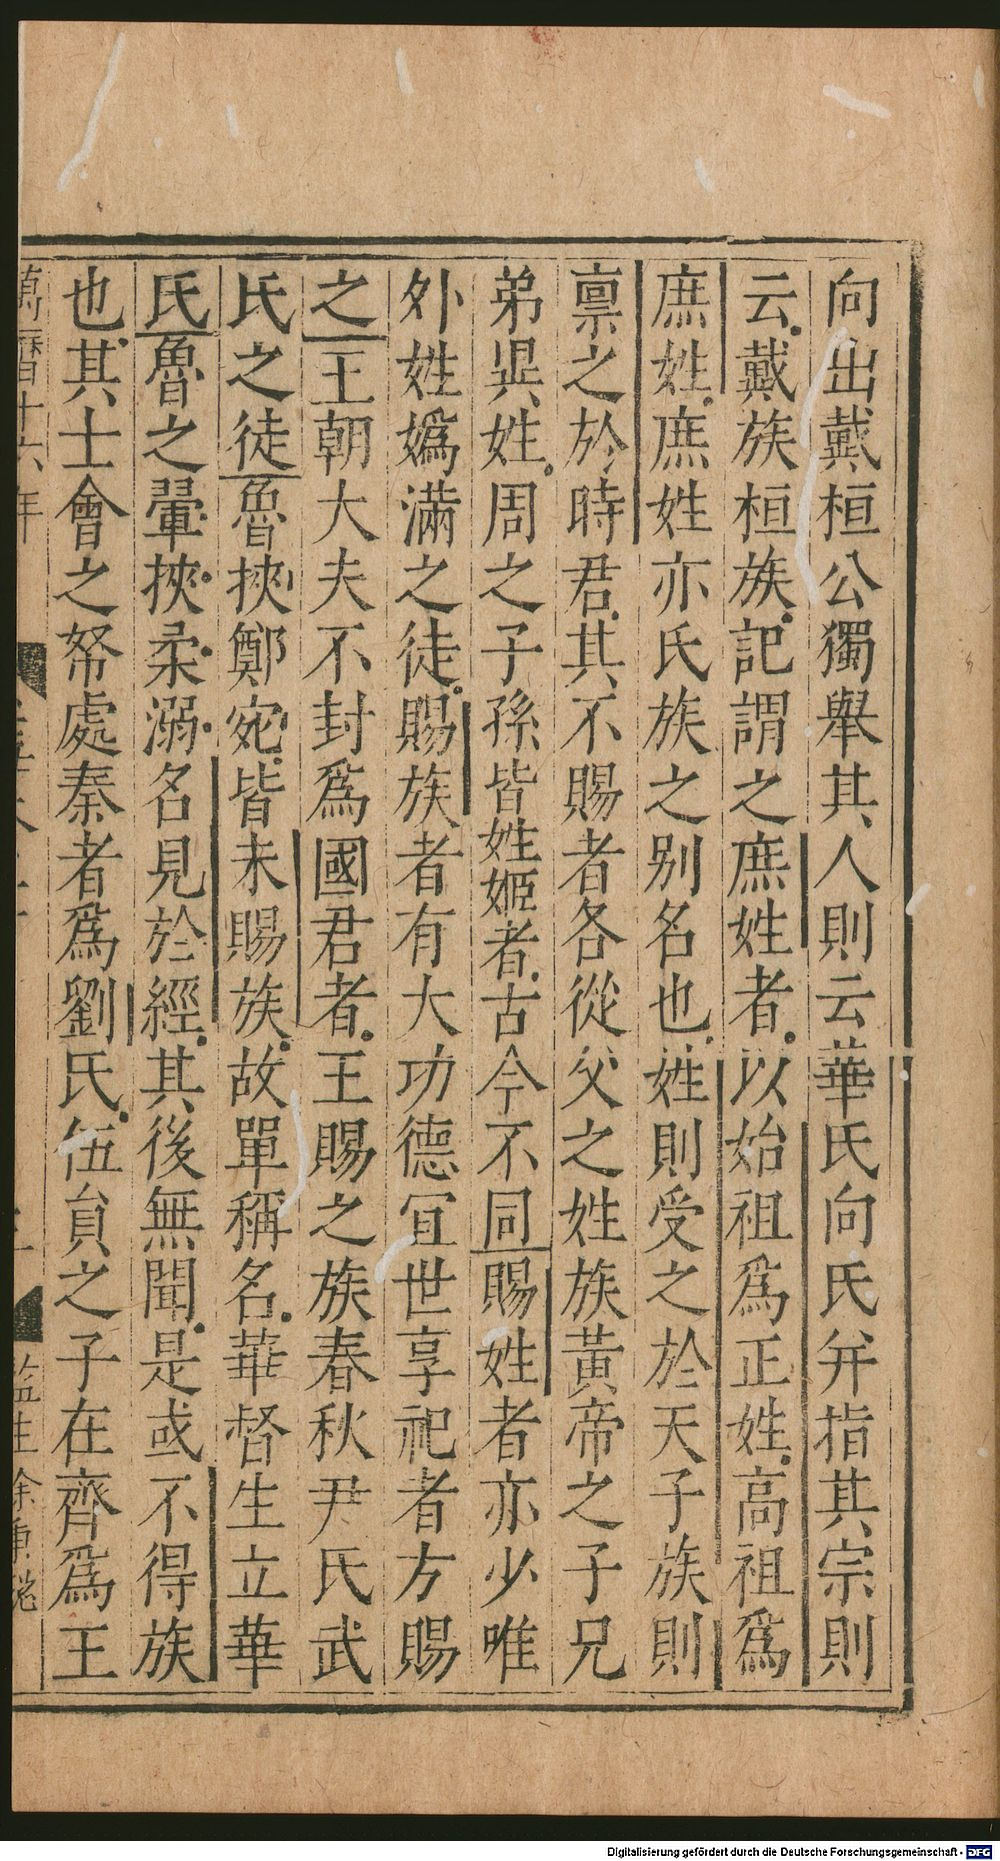 向出戴桓公獨舉其人則云華氏向氏并指其宗則
云戴族桓族記謂之庶姓者以始祖爲正姓高祖爲
庶姓庶姓亦氏族之别名也姓則受之於天子族則
禀之於時君其不賜者各從父之姓族黃帝之子兄
弟異姓周之子孫皆姓姬者古今不同賜姓者亦少唯
外姓嬀滿之徒賜族者有大功德宜世享祀者方賜
之王朝大夫不封爲國君者王賜之族春秋尹氏武
氏之徒魯挾鄭宛皆未賜族故單稱名華督生立華
氏魯之翬挾柔溺名見於經其後無聞是或不得族
也其士會之帑處秦者爲劉氏伍員之子在齊爲王
萬曆十六年
監生
Digitalisierung gefördert durch die Deutsche Forschungsgemeinschaft - DFG